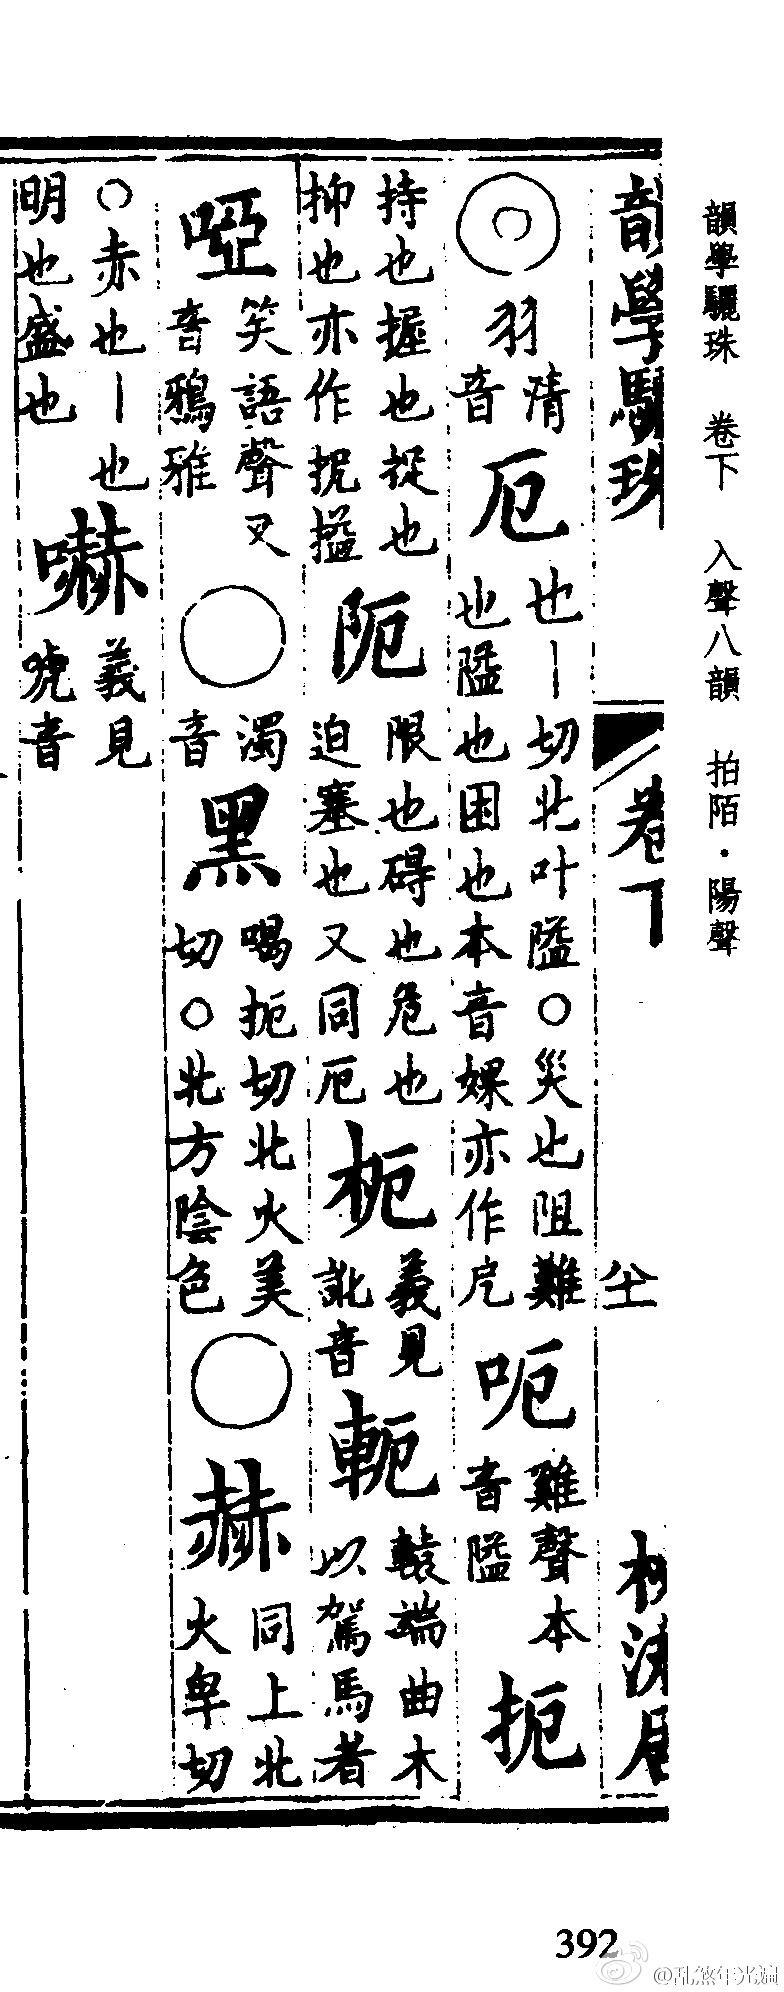 韻學驪珠 卷下 入聲八韻 拍陌·陽聲
韻學驪珠 卷下 六十 枕流居
◎羽清音厄也丨切北叶隘○災也阻難也隘也困也本音婐亦作戹呃雞聲本音隘扼
持也握也捉也抑也亦作捉搤阨限也碍也危也迫塞也又同厄枙義見訛音軶轅端曲木以駕馬者
啞笑語聲又音鴉雅○濁音黑喝扼切北火美切○北方陰色○赫同上北火卑切
○赤也丨也明也盛也嚇義見唬音
392
@乱煞年光遍